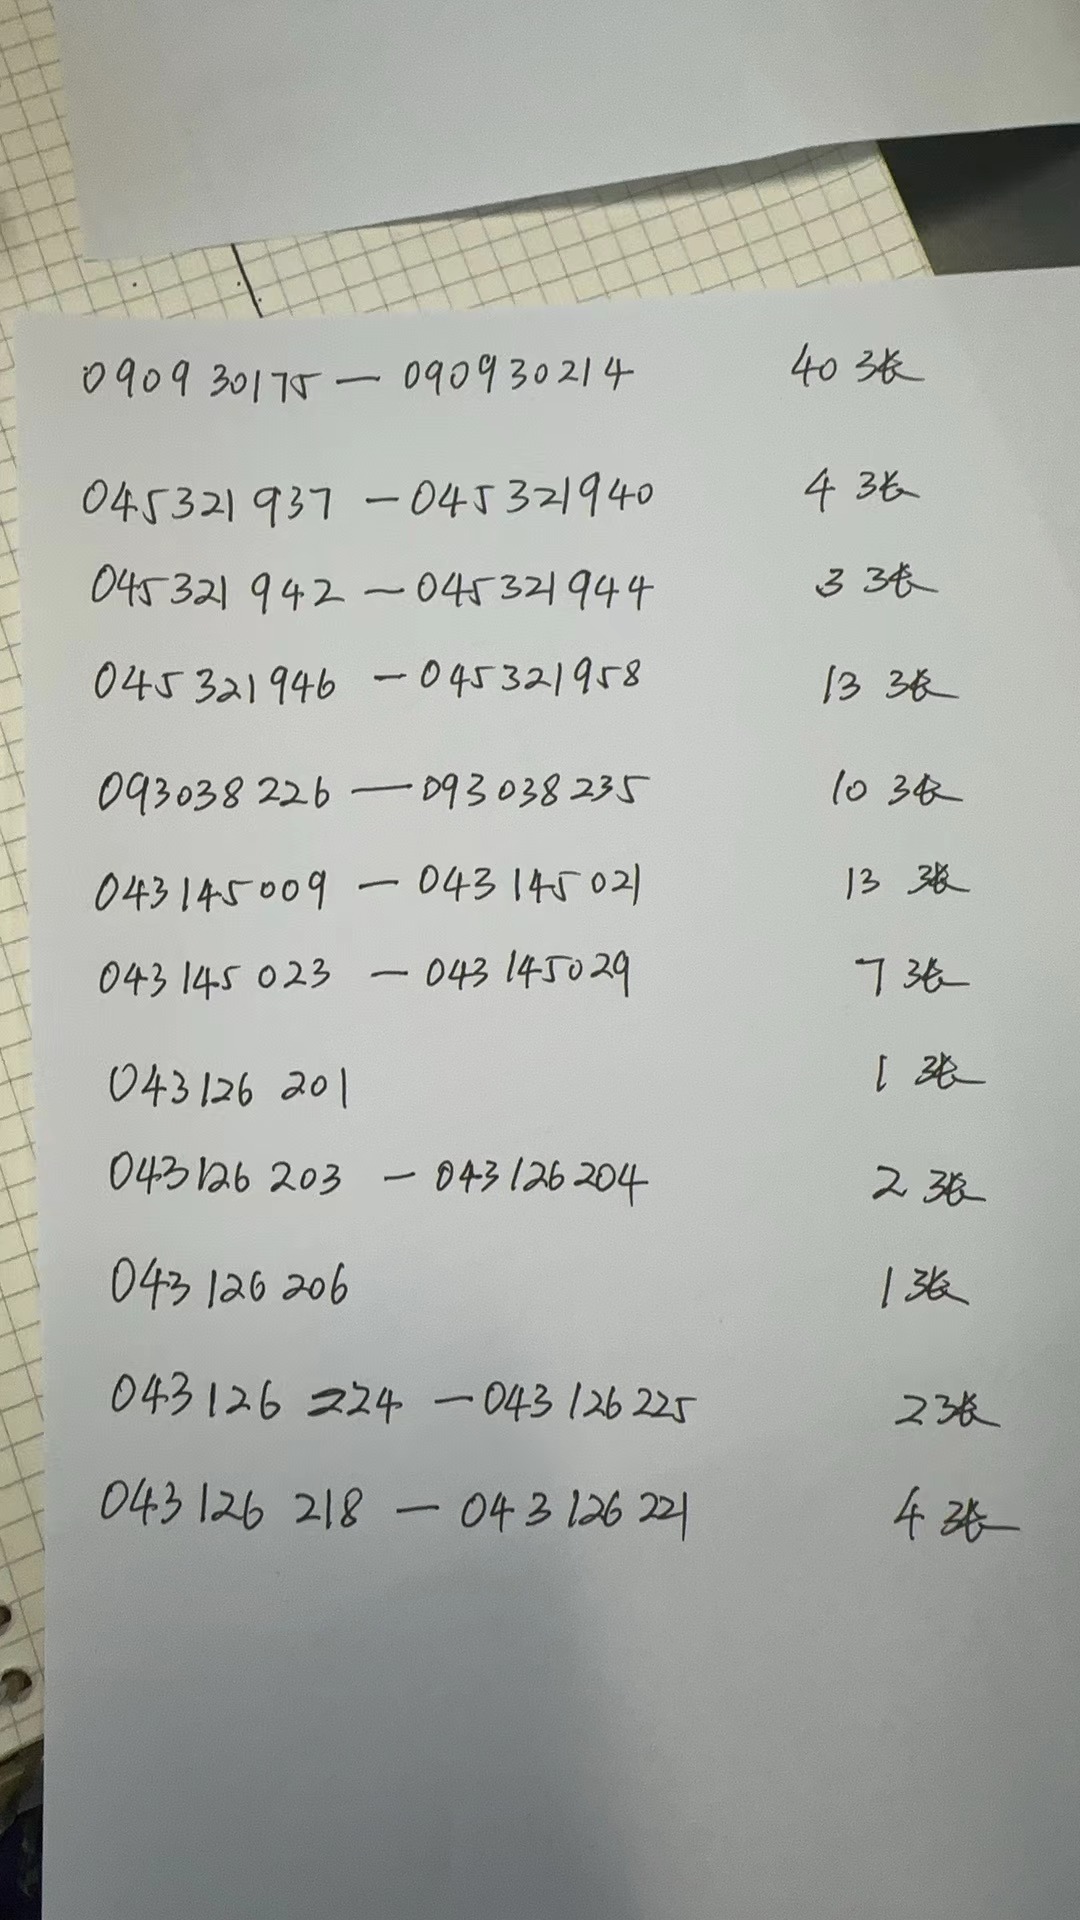 090930175—090930214 40张
045321937—045321940 4张
045321942—045321944 3张
045321946—045321958 13张
093038226—093038235 10张
043145009—043145021 13张
043145023—043145029 7张
043126201 1张
043126203—043126204 2张
043126206 1张
043126224—043126225 2张
043126218—043126221 4张